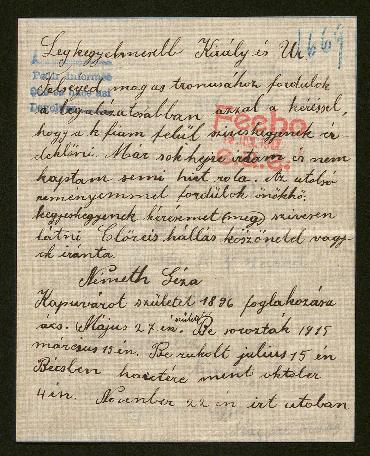 Legkegyelmesebb Király és Úr.
1669
felséged magas tronusához fordulok
a legalázatosabban azzal a kéréssel
hogy a k fiam felül sziveskegyenek ér
deklőni. Már sok helyre irtam és nem
kaptam semi hirt rola. Az utolsó
reményemmel fordulok önökhö.
kegyeskegyenek kérésemet (meg) szivesen
látni Előreis hállás köszöneld vagy
ok iránta.
Németh Géza
Kapuvárot születet 1896 foglakozása
ács. Május 27 én. született Be sorozták 1915
március 15 én. Be rukolt julius 15 én
Bécsben harctére ment oktober
4 én. November 22 en irt utoban